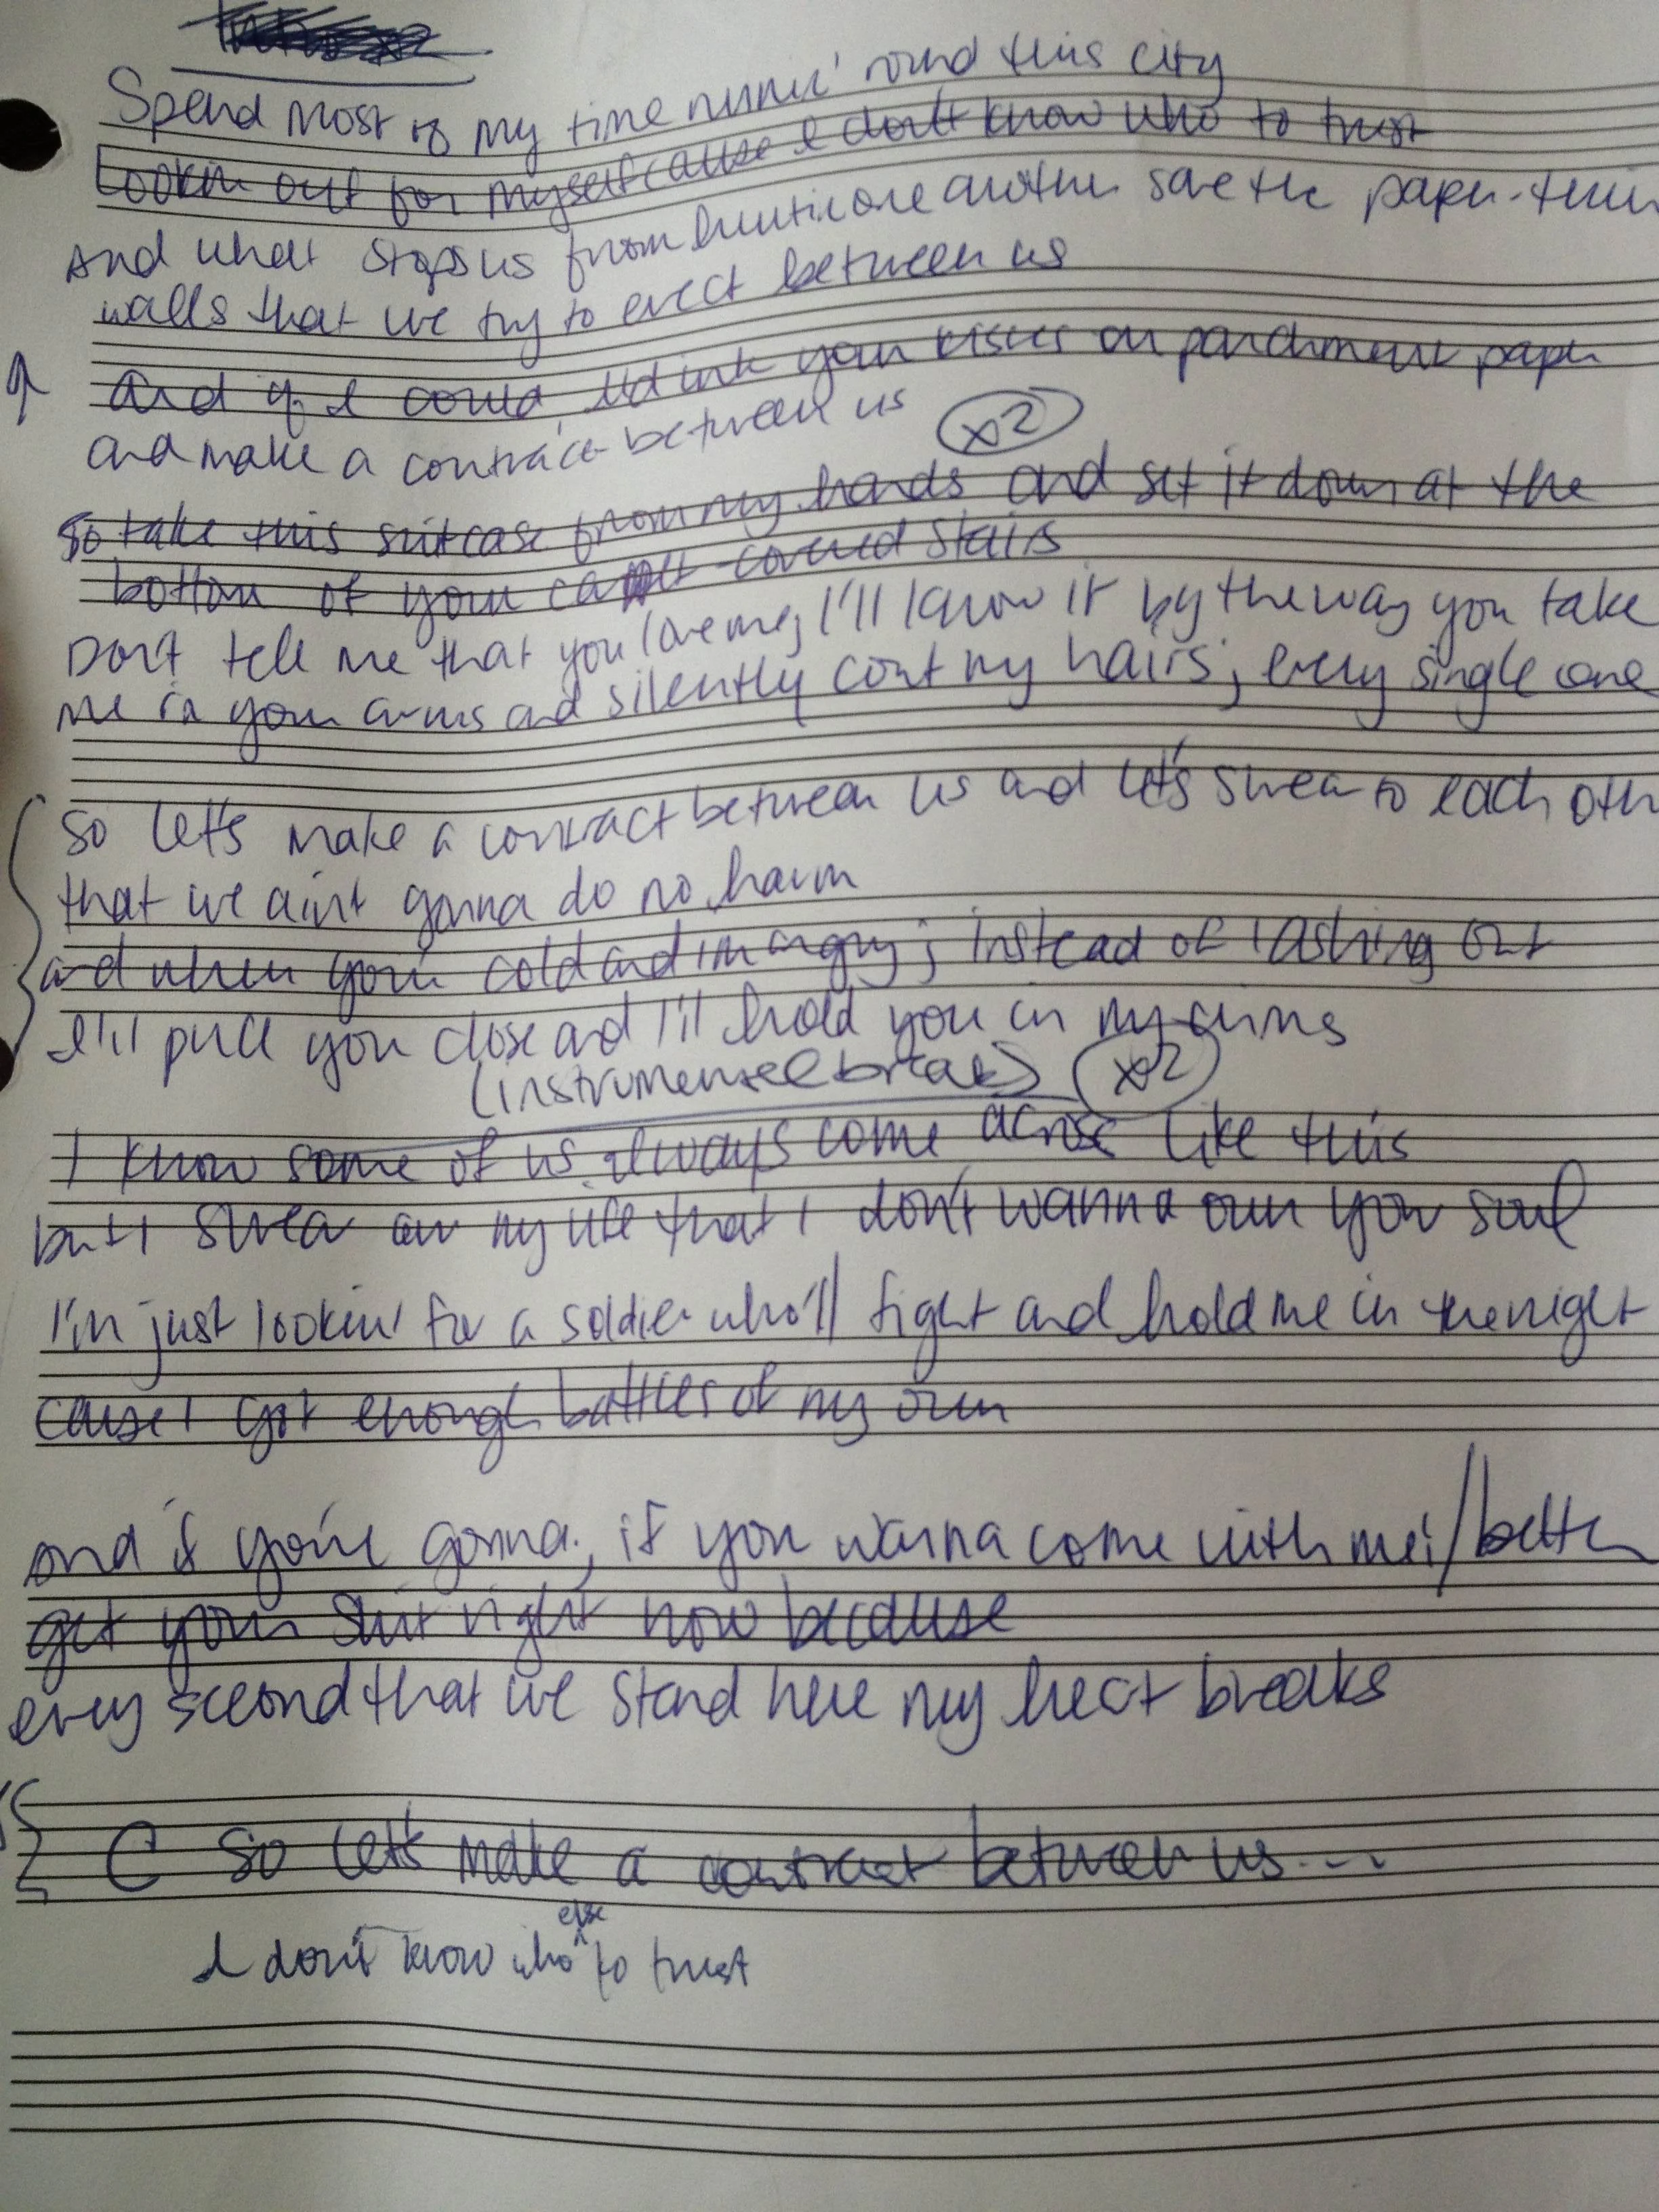 Spend most of my time runnin' round this city
Lookin out for myself cause I don't know who to trust
And what stops us from hurtin one another save the paper-thin
walls that we try to erect between us
And if I could I'd ink your kisses on parchment paper
and make a contract between us x2
So take this suitcase from my hands and set it down at the
bottom of your covered stairs
Don't tell me that you love me, I'll know it by the way you take
me in your arms and silently cont my hairs, every single one
So let's make a contract between us and let's swear to each oth
that we ain't gonna do no harm
and when you're cold and I'm angry, instead of lashing out
I'll pull you close and I'll hold you in my arms
(instrumental break) x2
I know some of us always come across like this
but I swear on my life that I don't wanna own your soul
I'm just lookin' for a soldier who'll fight and hold me in the night
cause I got enough battles of my own
and if you're gonna, if you wanna come with me / better
get your shit right now because
every second that we stand here my heart breaks
C So let's make a contract between us...
else
I don't know who ^ to trust